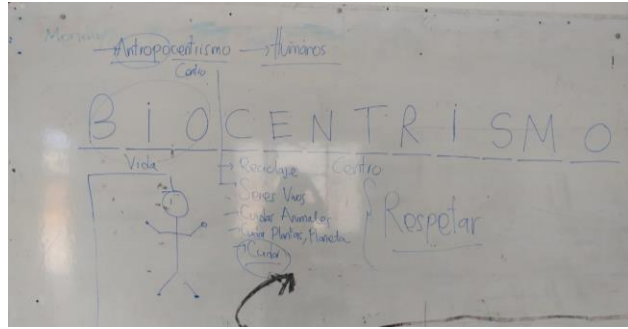 → Antropocentrismo → Humanos
Centro
BIOCENTRISMO
Vida
Centro
→ Reciclaje
Seres Vivos
Cuidar Animales
Cuidar Plantas, Planeta
→ Cuidar
Respetar